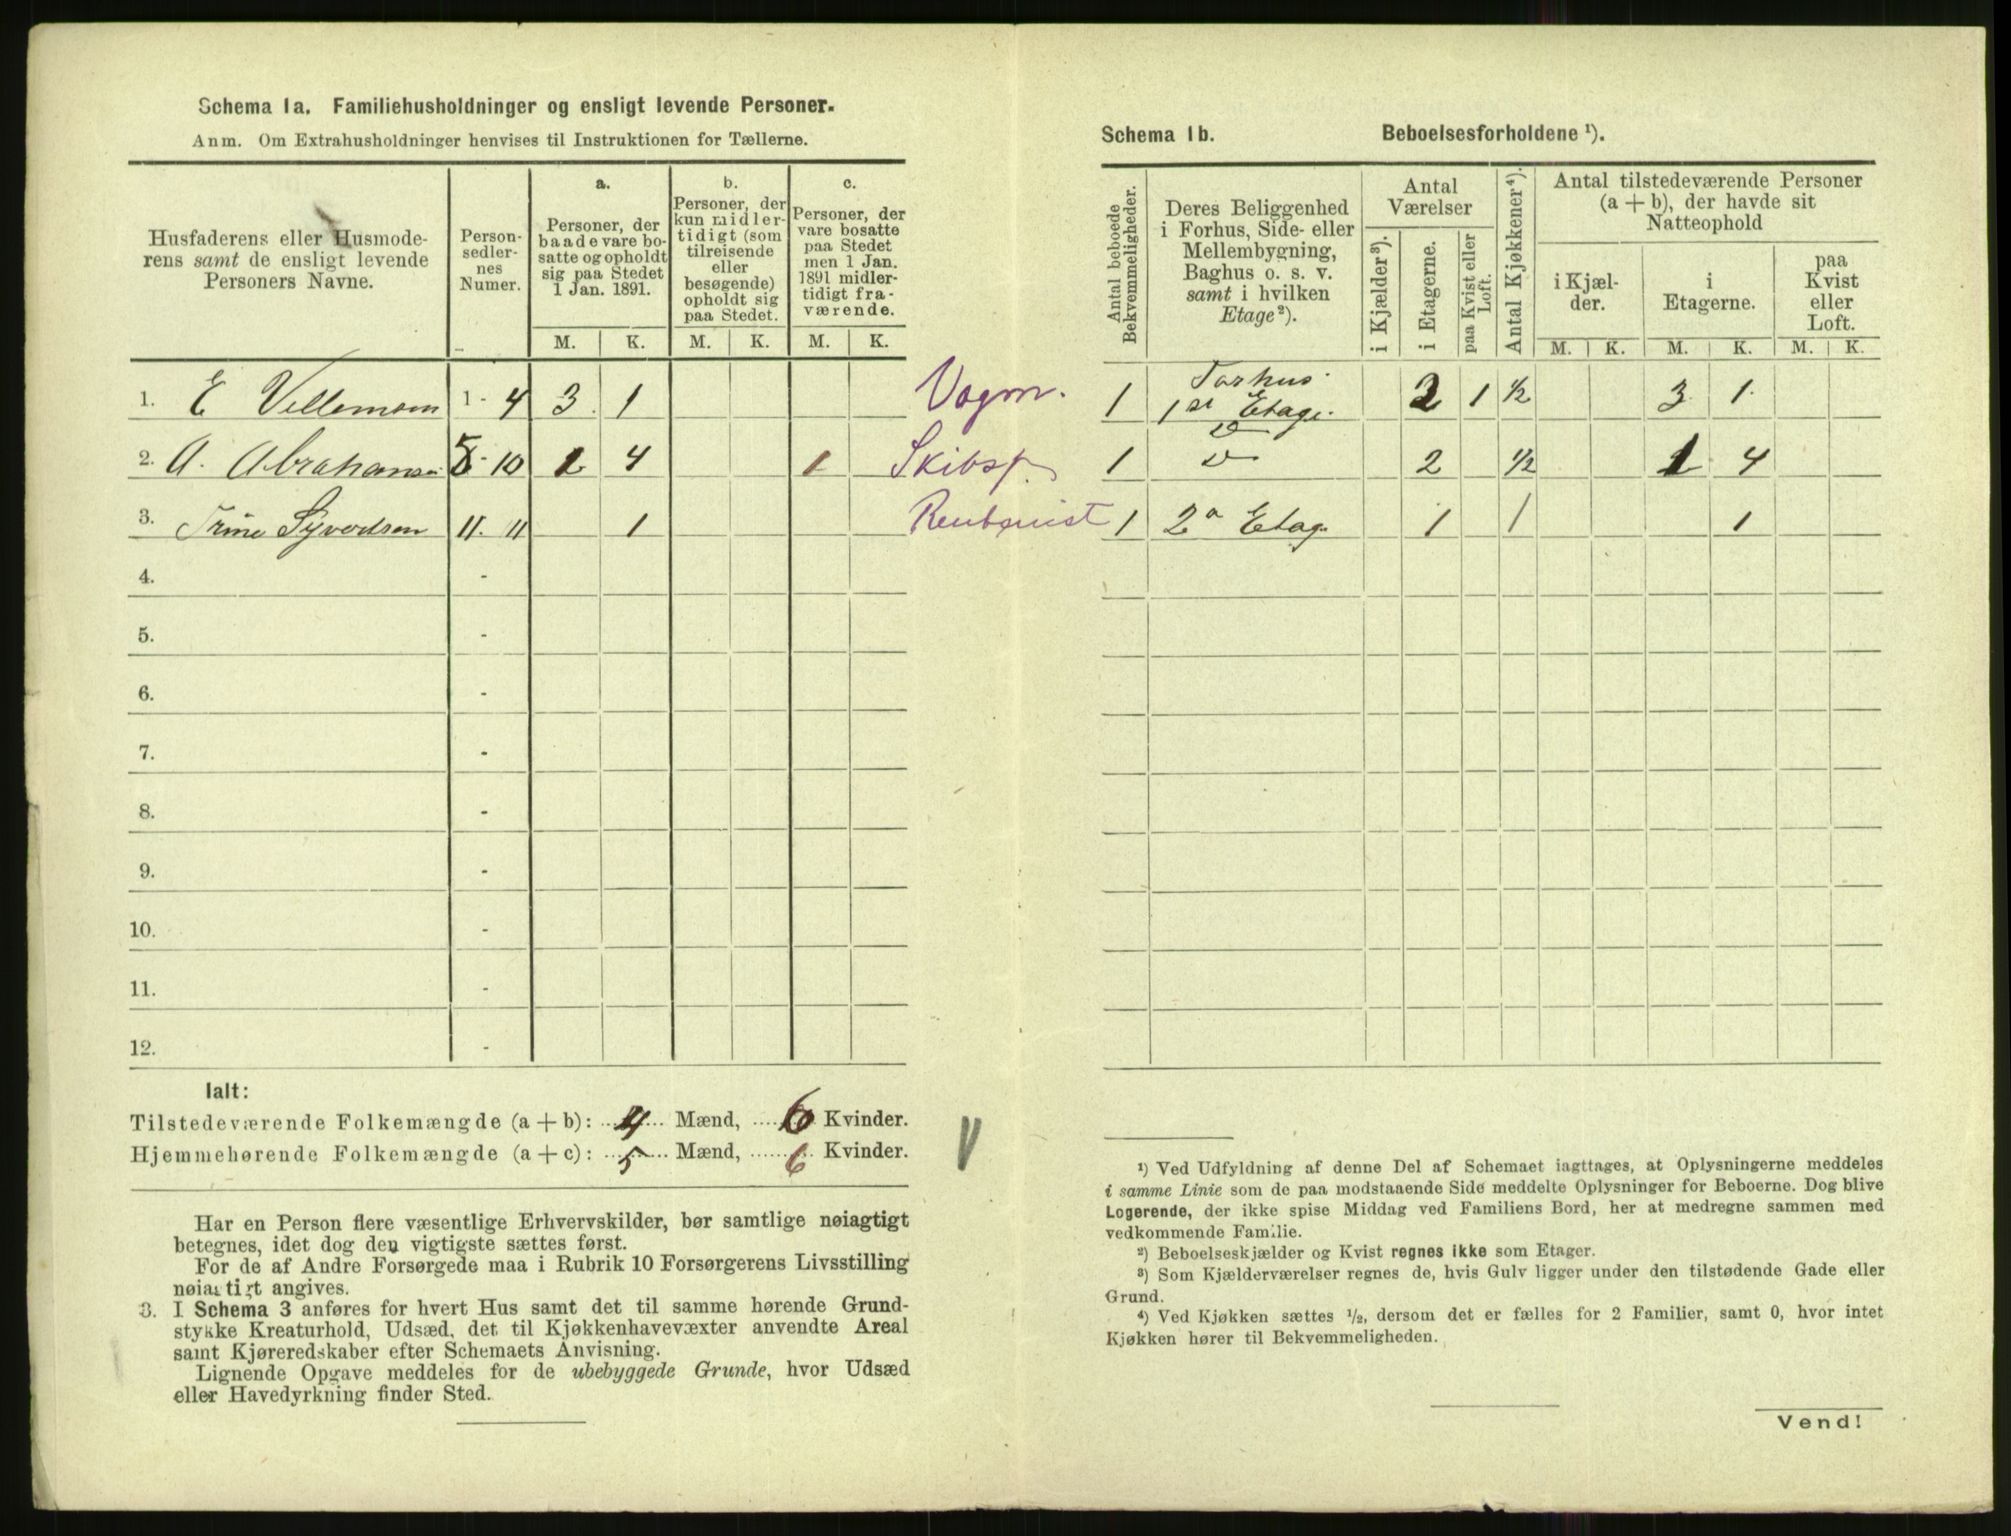 Schema 1a. Familiehusholdninger og ensligt levende Personer.
Anm. Om Extrahusholdninger henvises til Instruktionen for Tællerne.
Husfaderens eller Husmode-
rens samt de ensligt levende
Personers Navne.
Person-
sedler-
nes
Numer.
a.
Personer, der
baade vare bo-
satte og opholdt
sig paa Stedet
1 Jan. 1891.
b.
Personer, der
kun midler-
tidigt (som
tilreisende
eller
besøgende)
opholdt sig
paa Stedet.
c.
Personer, der
vare bosatte
paa Stedet
men 1 Jan.
1891 midler-
tidigt fra-
værende.
M. K. M. K. M. K.
1. E Villemom 1 - 4 3 1 Vogm.
2. A. Abrahamse 5 - 10 1 4 1 Skibsf.
3. Trine Syvertsen 11 - 11 1
4. -
5. -
6. -
7. -
8. -
9. -
10. -
11. -
12. -
Ialt:
Tilstedeværende Folkemængde (a + b): 4 Mænd, 6 Kvinder.
Hjemmehørende Folkemængde (a + c): 5 Mænd, 6 Kvinder.
Har en Person flere væsentlige Erhvervskilder, bør samtlige nøiagtigt
betegnes, idet dog den vigtigste sættes først.
For de af Andre Forsørgede maa i Rubrik 10 Forsørgerens Livsstilling
nøiagtigt angives.
3. I Schema 3 anføres for hvert Hus samt det til samme hørende Grund-
stykke Kreaturhold, Udsæd, det til Kjøkkenhavevæxter anvendte Areal
samt Kjøreredskaber efter Schemaets Anvisning.
Lignende Opgave meddeles for de ubebyggede Grunde, hvor Udsæd
eller Havedyrkning finder Sted.
Schema 1b. Beboelsesforholdene ¹).
Antal beboede
Bekvemmeligheder.
Deres Beliggenhed
i Forhus, Side- eller
Mellembygning,
Baghus o. s. v.
samt i hvilken
Etage²).
Antal
Værelser
i Kjælder³).
i Etagerne.
paa Kvist eller
Loft.
Antal Kjøkkener⁴).
Antal tilstedeværende Personer
(a + b), der havde sit
Natteophold
i Kjæl-
der.
i
Etagerne.
paa
Kvist
eller
Loft.
M. K. M. K. M. K.
1 Forhus 1st Etage. 2 1 ½ 3 1
1 2 ½ 1 4
1 2n Etag. 1 1 1
¹) Ved Udfyldning af denne Del af Schemaet iagttages, at Oplysningerne meddeles
i samme Linie som de paa modstaaende Side meddelte Oplysninger for Beboerne. Dog blive
Logerende, der ikke spise Middag ved Familiens Bord, her at medregne sammen med
vedkommende Familie.
²) Beboelseskjælder og Kvist regnes ikke som Etager.
³) Som Kjælderværelser regnes de, hvis Gulv ligger under den tilstødende Gade eller
Grund.
⁴) Ved Kjøkken sættes ½, dersom det er fælles for 2 Familier, samt 0, hvor intet
Kjøkken hører til Bekvemmeligheden.
Vend!